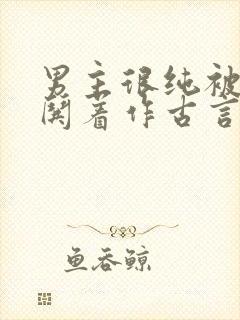 男主很纯被
闂着作古言
鱼吞鲸